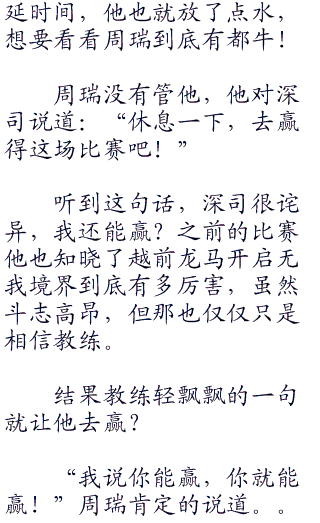 延时间，他也就放了点水，
想要看看周瑞到底有都牛！
周瑞没有管他，他对深
司说道：“休息一下，去赢
得这场比赛吧！”
听到这句话，深司很诧
异，我还能赢？之前的比赛
他也知晓了越前龙马开启无
我境界到底有多厉害，虽然
斗志高昂，但那也仅仅只是
相信教练。
结果教练轻飘飘的一句
就让他去赢？
“我说你能赢，你就能
赢！”周瑞肯定的说道。。